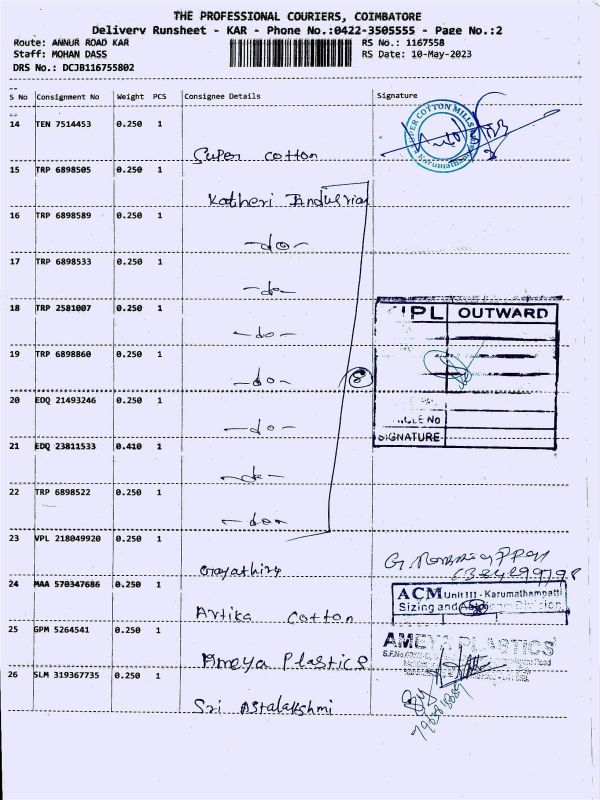 THE PROFESSIONAL COURIERS, COIMBATORE
Delivery Runsheet - KAR - Phone No.:0422-3505555 - Page No.:2
Route: ANNUR ROAD KAR
RS No.: 1167558
Staff: MOHAN DASS
RS Date: 10-May-2023
DRS No.: DCJB116755802
S No Consignment No Weight PCS Consignee Details Signature
14 TEN 7514453 0.250 1
Super cotton
15 TRP 6898505 0.250 1
Katheri Industrial
16 TRP 6898589 0.250 1
-do-
17 TRP 6898533 0.250 1
-do-
18 TRP 2581007 0.250 1
-do-
19 TRP 6898860 0.250 1
-do-
8
20 EDQ 21493246 0.250 1
-do-
21 EDQ 23811533 0.410 1
-do-
22 TRP 6898522 0.250 1
-do-
23 VPL 218049920 0.250 1
Gayathiri
24 MAA 570347686 0.250 1
Artika cotton
25 GPM 5264541 0.250 1
Ameya Plastics
26 SLM 319367735 0.250 1
Sri Astalakshmi
COTTON MILLS
Karumathampatti
IPL OUTWARD
SIGNATURE
ACM Unit III - Karumathampatti
Sizing and
AMEYA PLASTICS